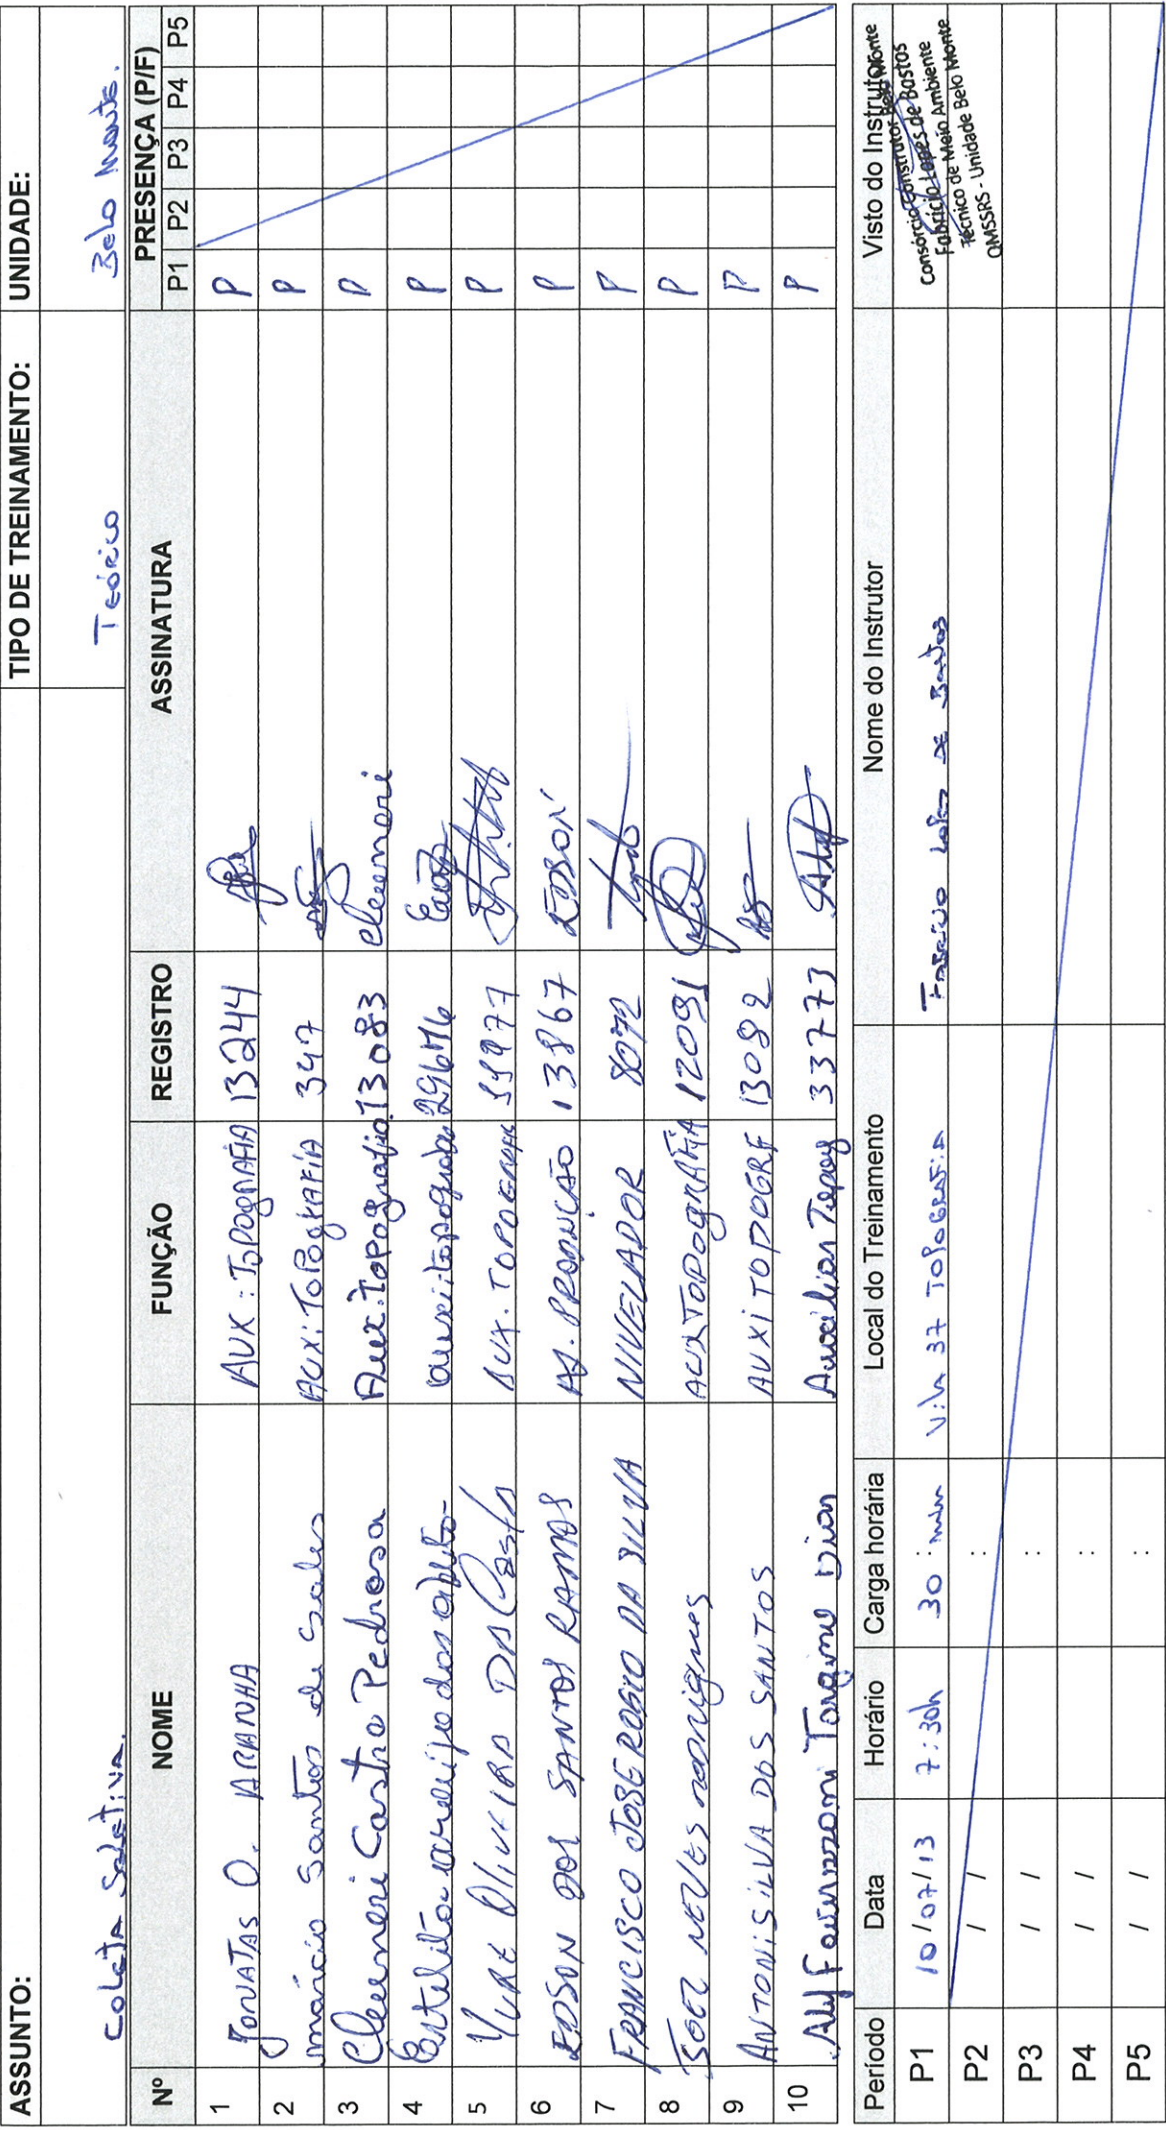 ASSUNTO: TIPO DE TREINAMENTO: UNIDADE:
Coleta Seletiva. Teórico Belo Monte.
Nº NOME FUNÇÃO REGISTRO ASSINATURA PRESENÇA (P/F)
P1 P2 P3 P4 P5
1 JONATAS O. ARANHA AUX: TOPOGRAFIA 13244 P
2 márcio Santos de Sales AUX: TOPOGRAFIA 347 P
3 Cleumeri Castro Pedrosa Aux: Topografia 13083 cleumeri P
4 P
5 YURE OLIVEIRA DA Costa AUX. TOPOGRAF P
6 EDSON DOS SANTOS RAMOS AJ. PRODUÇÃO 13867 EDSON P
7 FRANCISCO JOSE ROGIO DA SILVA NIVELADOR 8072 P
8 JOEZ NEVES rodrigues AUXTOPOgRAFIA 12091 P
9 ANTONISILVA DOS SANTOS AUXITOPOGRF 13082 P
10 Targino Dias Auxiliar Topog 33773 P
Período Data Horário Carga horária Local do Treinamento Nome do Instrutor Visto do Instrutor
P1 10/07/13 7:30h 30 : min Vila 37 TOPOGRAFIA Fabricio Lopes de Bastos
Consórcio Construtor Belo Monte
Fabrício Lopes de Bastos
Técnico de Meio Ambiente
QMSSRS - Unidade Belo Monte
P2 / / :
P3 / / :
P4 / / :
P5 / / :